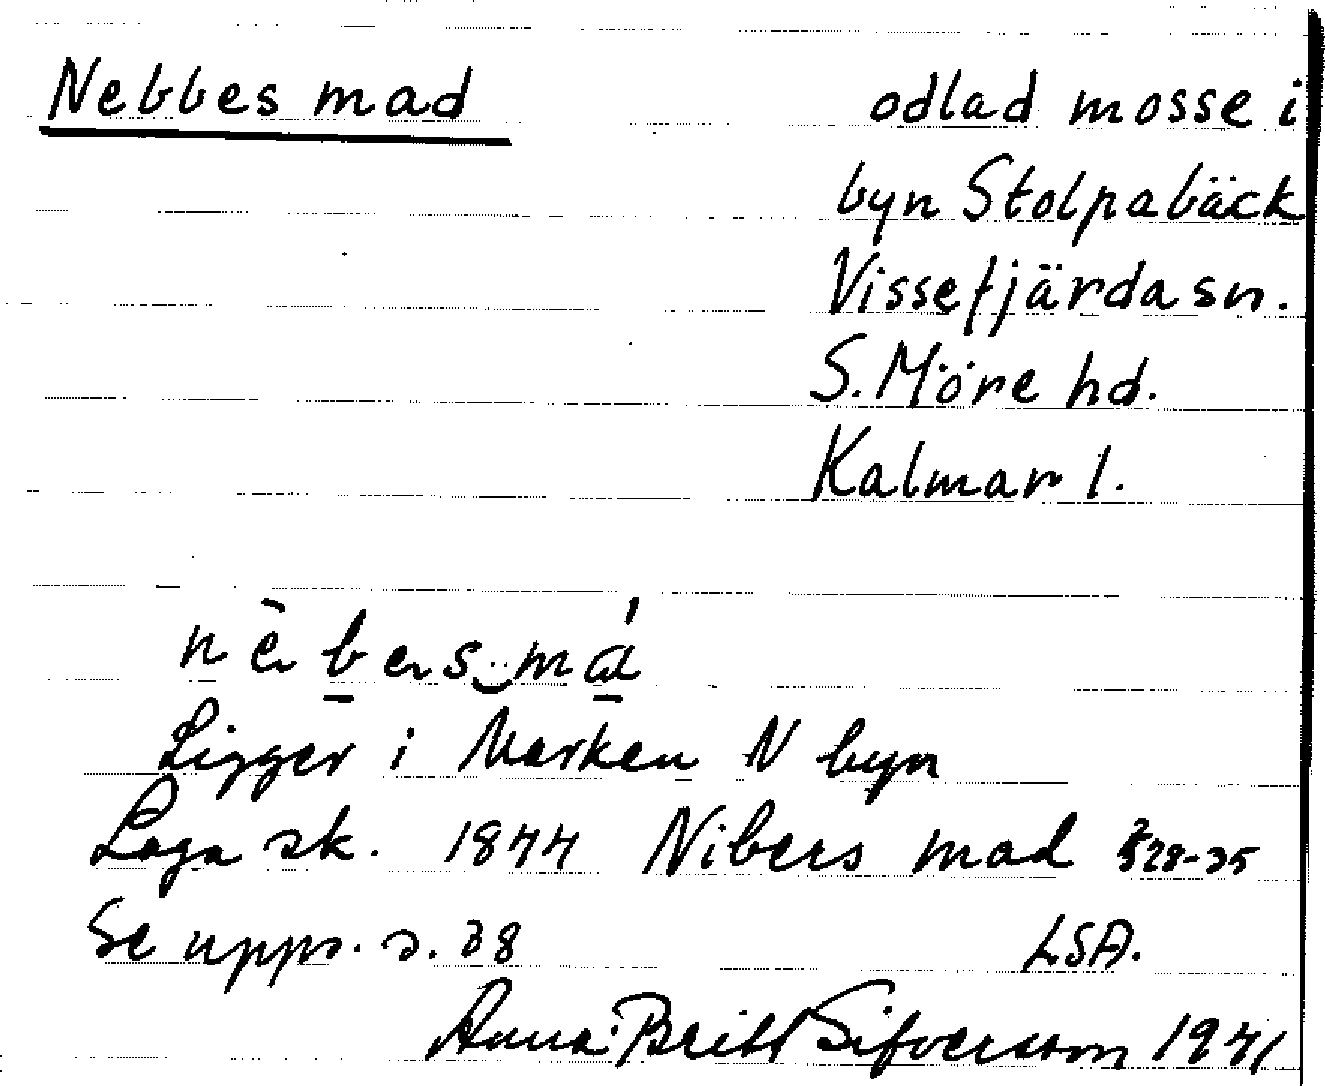 Nebbes mad odlad mosse i
byn Stolpabäck
Vissefjärda sn.
S. Möre hd.
Kalmar l.
nèbers‿má
Ligger i Marken N byn
Laga sk. 1844 Nibers mad
Se upps. s. 38 LSA.
Anna-Britt Sifversson 1941